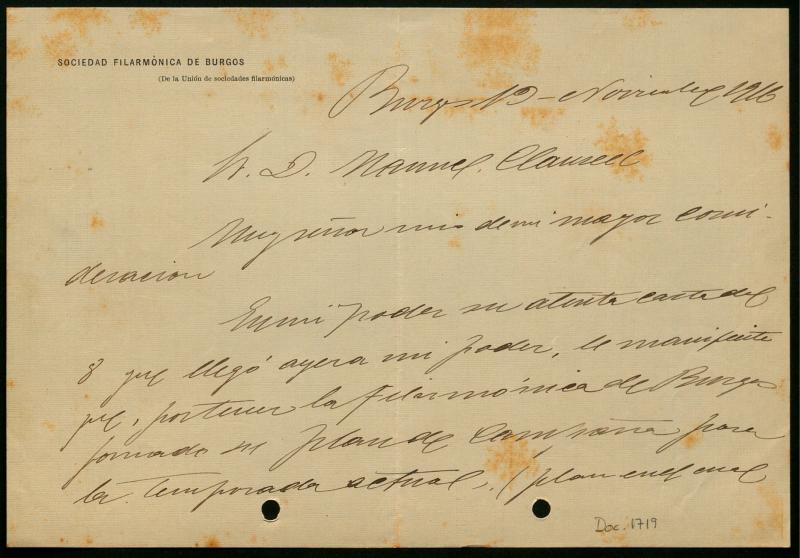 SOCIEDAD FILARMÓNICA DE BURGOS
(De la Unión de sociedades filarmónicas)
Burgos 19 - Noviembre 1916
Sr. D. Manuel Clausell
Muy señor mio de mi mayor consi-
deracion
En mi poder su atenta carta del
8 que llegó ayer a mi poder, le manifiesto
que, por tener la Filarmónica de Burgos
formado su plan de campaña para
la temporada actual, (plan en el cual
Doc. 1719